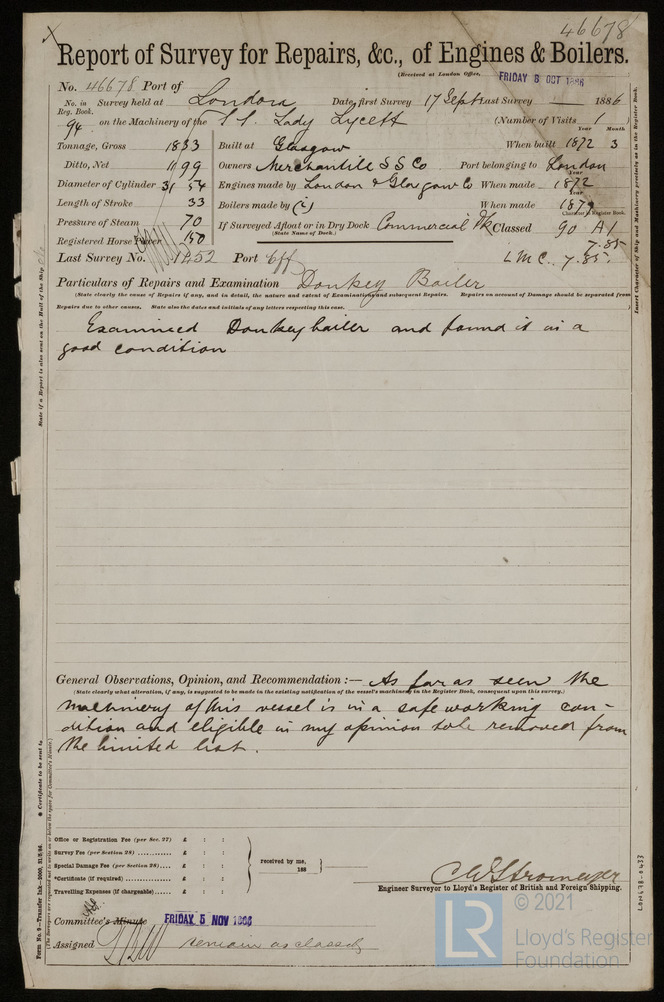 46678
Report of Survey for Repairs, &c., of Engines & Boilers.
(Received at London Office, FRIDAY 8 OCT 1886
No. 46678 Port of
No. in Reg. Book. Survey held at London Date, first Survey 17 Sept Last Survey — 1886
94 on the Machinery of the S.S. Lady Lycett (Number of Visits 1)
Tonnage, Gross 1833 Built at Glasgow When built Year 1872 Month 3
Ditto, Net 1199 Owners Merchantile S S Co Port belonging to London
Diameter of Cylinder 31 54 Engines made by London & Glasgow Co When made Year 1872
Length of Stroke 33 Boilers made by (") When made Year 1872
Pressure of Steam 70 If Surveyed Afloat or in Dry Dock Commercial Dk Classed 90 A1
(State Name of Dock.) Character in Register Book.
Registered Horse Power 150 7.85
Last Survey No. 1452 Port Cff LMC. 7.85.
Particulars of Repairs and Examination Donkey Boiler
(State clearly the cause of Repairs if any, and in detail, the nature and extent of Examination and subsequent Repairs. Repairs on account of Damage should be separated from
Repairs due to other causes. State also the dates and initials of any letters respecting this case.)
Examined Donkey boiler and found it in a
good condition
General Observations, Opinion, and Recommendation :— As far as seen the
(State clearly what alteration, if any, is suggested to be made in the existing notification of the vessel's machinery in the Register Book, consequent upon this survey.)
machinery of this vessel is in a safe working con-
dition and eligible in my opinion to be removed from
the limited list.
Office or Registration Fee (per Sec. 27) £ : :
Survey Fee (per Section 28) ............ £ : :
Special Damage Fee (per Section 28).... £ : :
*Certificate (if required) ............ £ : :
Travelling Expenses (if chargeable)...... £ : :
received by me,
188
C E Stromeyer
Engineer Surveyor to Lloyd's Register of British and Foreign Shipping.
Committee's Minute FRIDAY 5 NOV 1886
Assigned remain as classed
State if a Report is also sent on the Hull of the Ship
* Certificate to be sent to
(The Surveyors are requested not to write on or below the space for Committee's Minute.)
Form No. 9—Transfer Ink—
Insert Character of Ship and Machinery precisely as in the Register Book.
LON678-0433
LR
© 2021
Lloyd's Register
Foundation